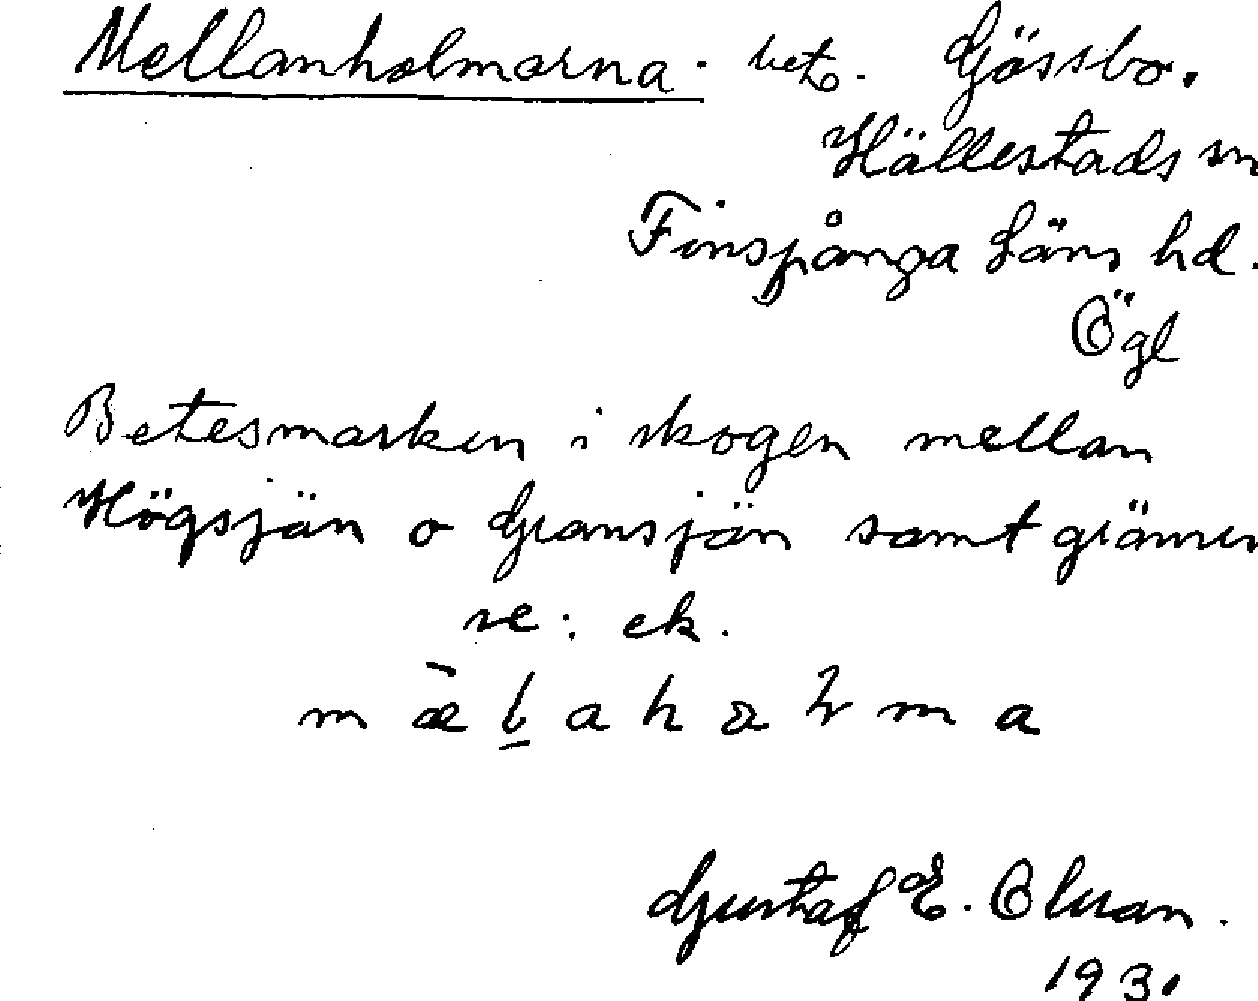 Mellanholmarna. bet. Gössbo.
Hällestads sn
Finspånga Läns hd.
Ögl
Betesmarken i skogen mellan
Högsjön o Gransjön samt gränsen
se: ek.
m a h m a
Gustaf E. Olsson.
1930